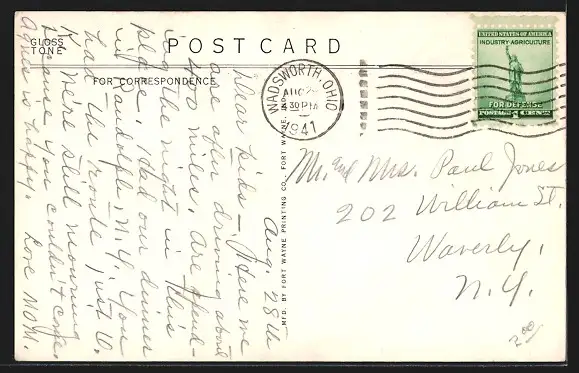 GLOSS
TONE
POST CARD
FOR CORRESPONDENCE
UNITED STATES OF AMERICA
INDUSTRY-AGRICULTURE
FOR DEFENSE
POSTAGE 1 CENT
WADSWORTH, OHIO
AUG 2
30 PM
1941
Aug. 28th
Dear kids - Here we
are after driving about
400 miles. Are spend-
ing the night in this
place. Had our dinner
in Randolph, N.Y. You
had the route just O.
K. We're still mourning
because you couldn't come.
Agnes is happy. Love MOM.
MFD. BY FORT WAYNE PRINTING CO., FORT WAYNE, IND.
Mr. and Mrs. Paul Jones
202 William St.
Waverly,
N.Y.
2.00